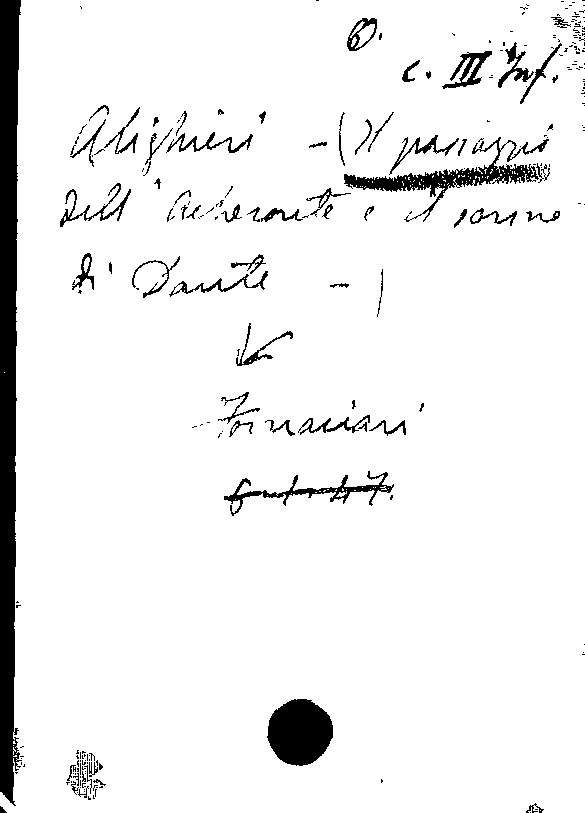 6.
c. III Inf.
Alighieri - (Il passaggio
dell' Acheronte e il sonno
di Dante - )
V.
Fornaciari
6-1-47.